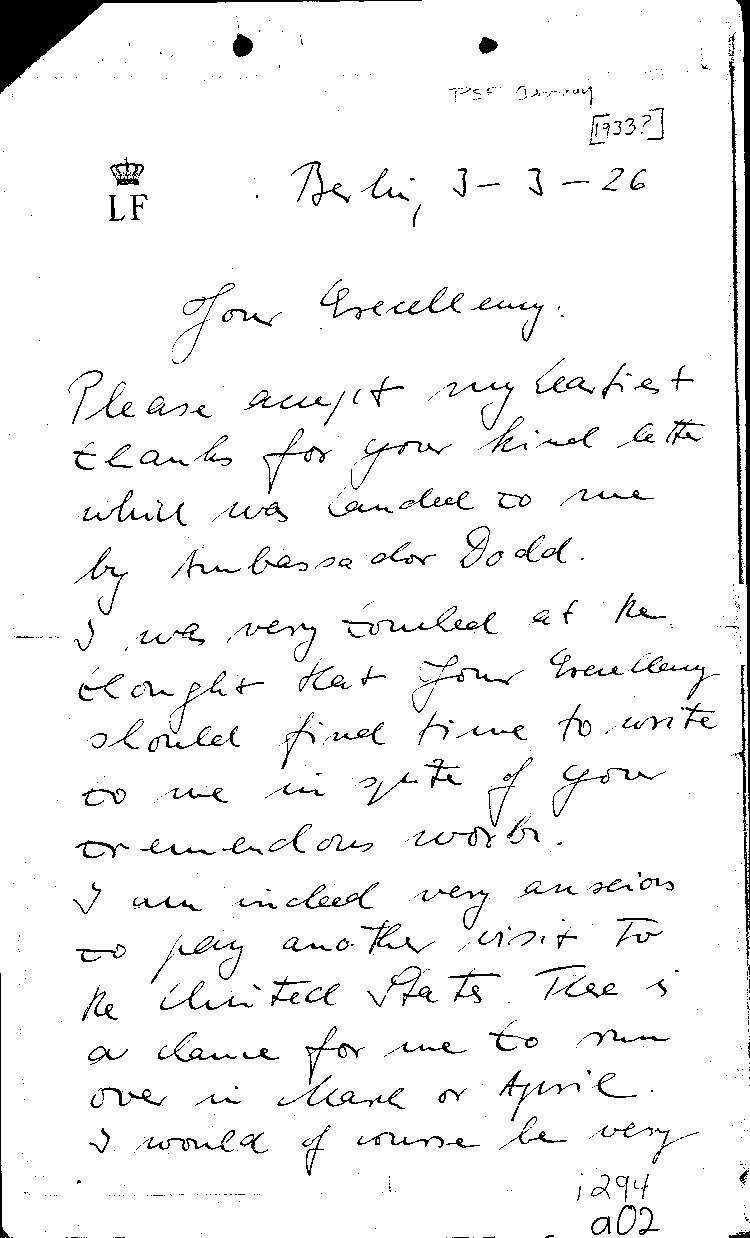 PSF Germany
[1933?]
LF
Berlin, 3 - 3 - 26
Your Excellency.
Please accept my heartiest
thanks for your kind letter
which was handed to me
by Ambassador Dodd.
I was very touched at the
thought that Your Excellency
should find time to write
to me in spite of your
tremendous work.
I am indeed very anxious
to pay another visit to
the United States. There is
a chance for me to run
over in March or April.
I would of course be very
i294
a02